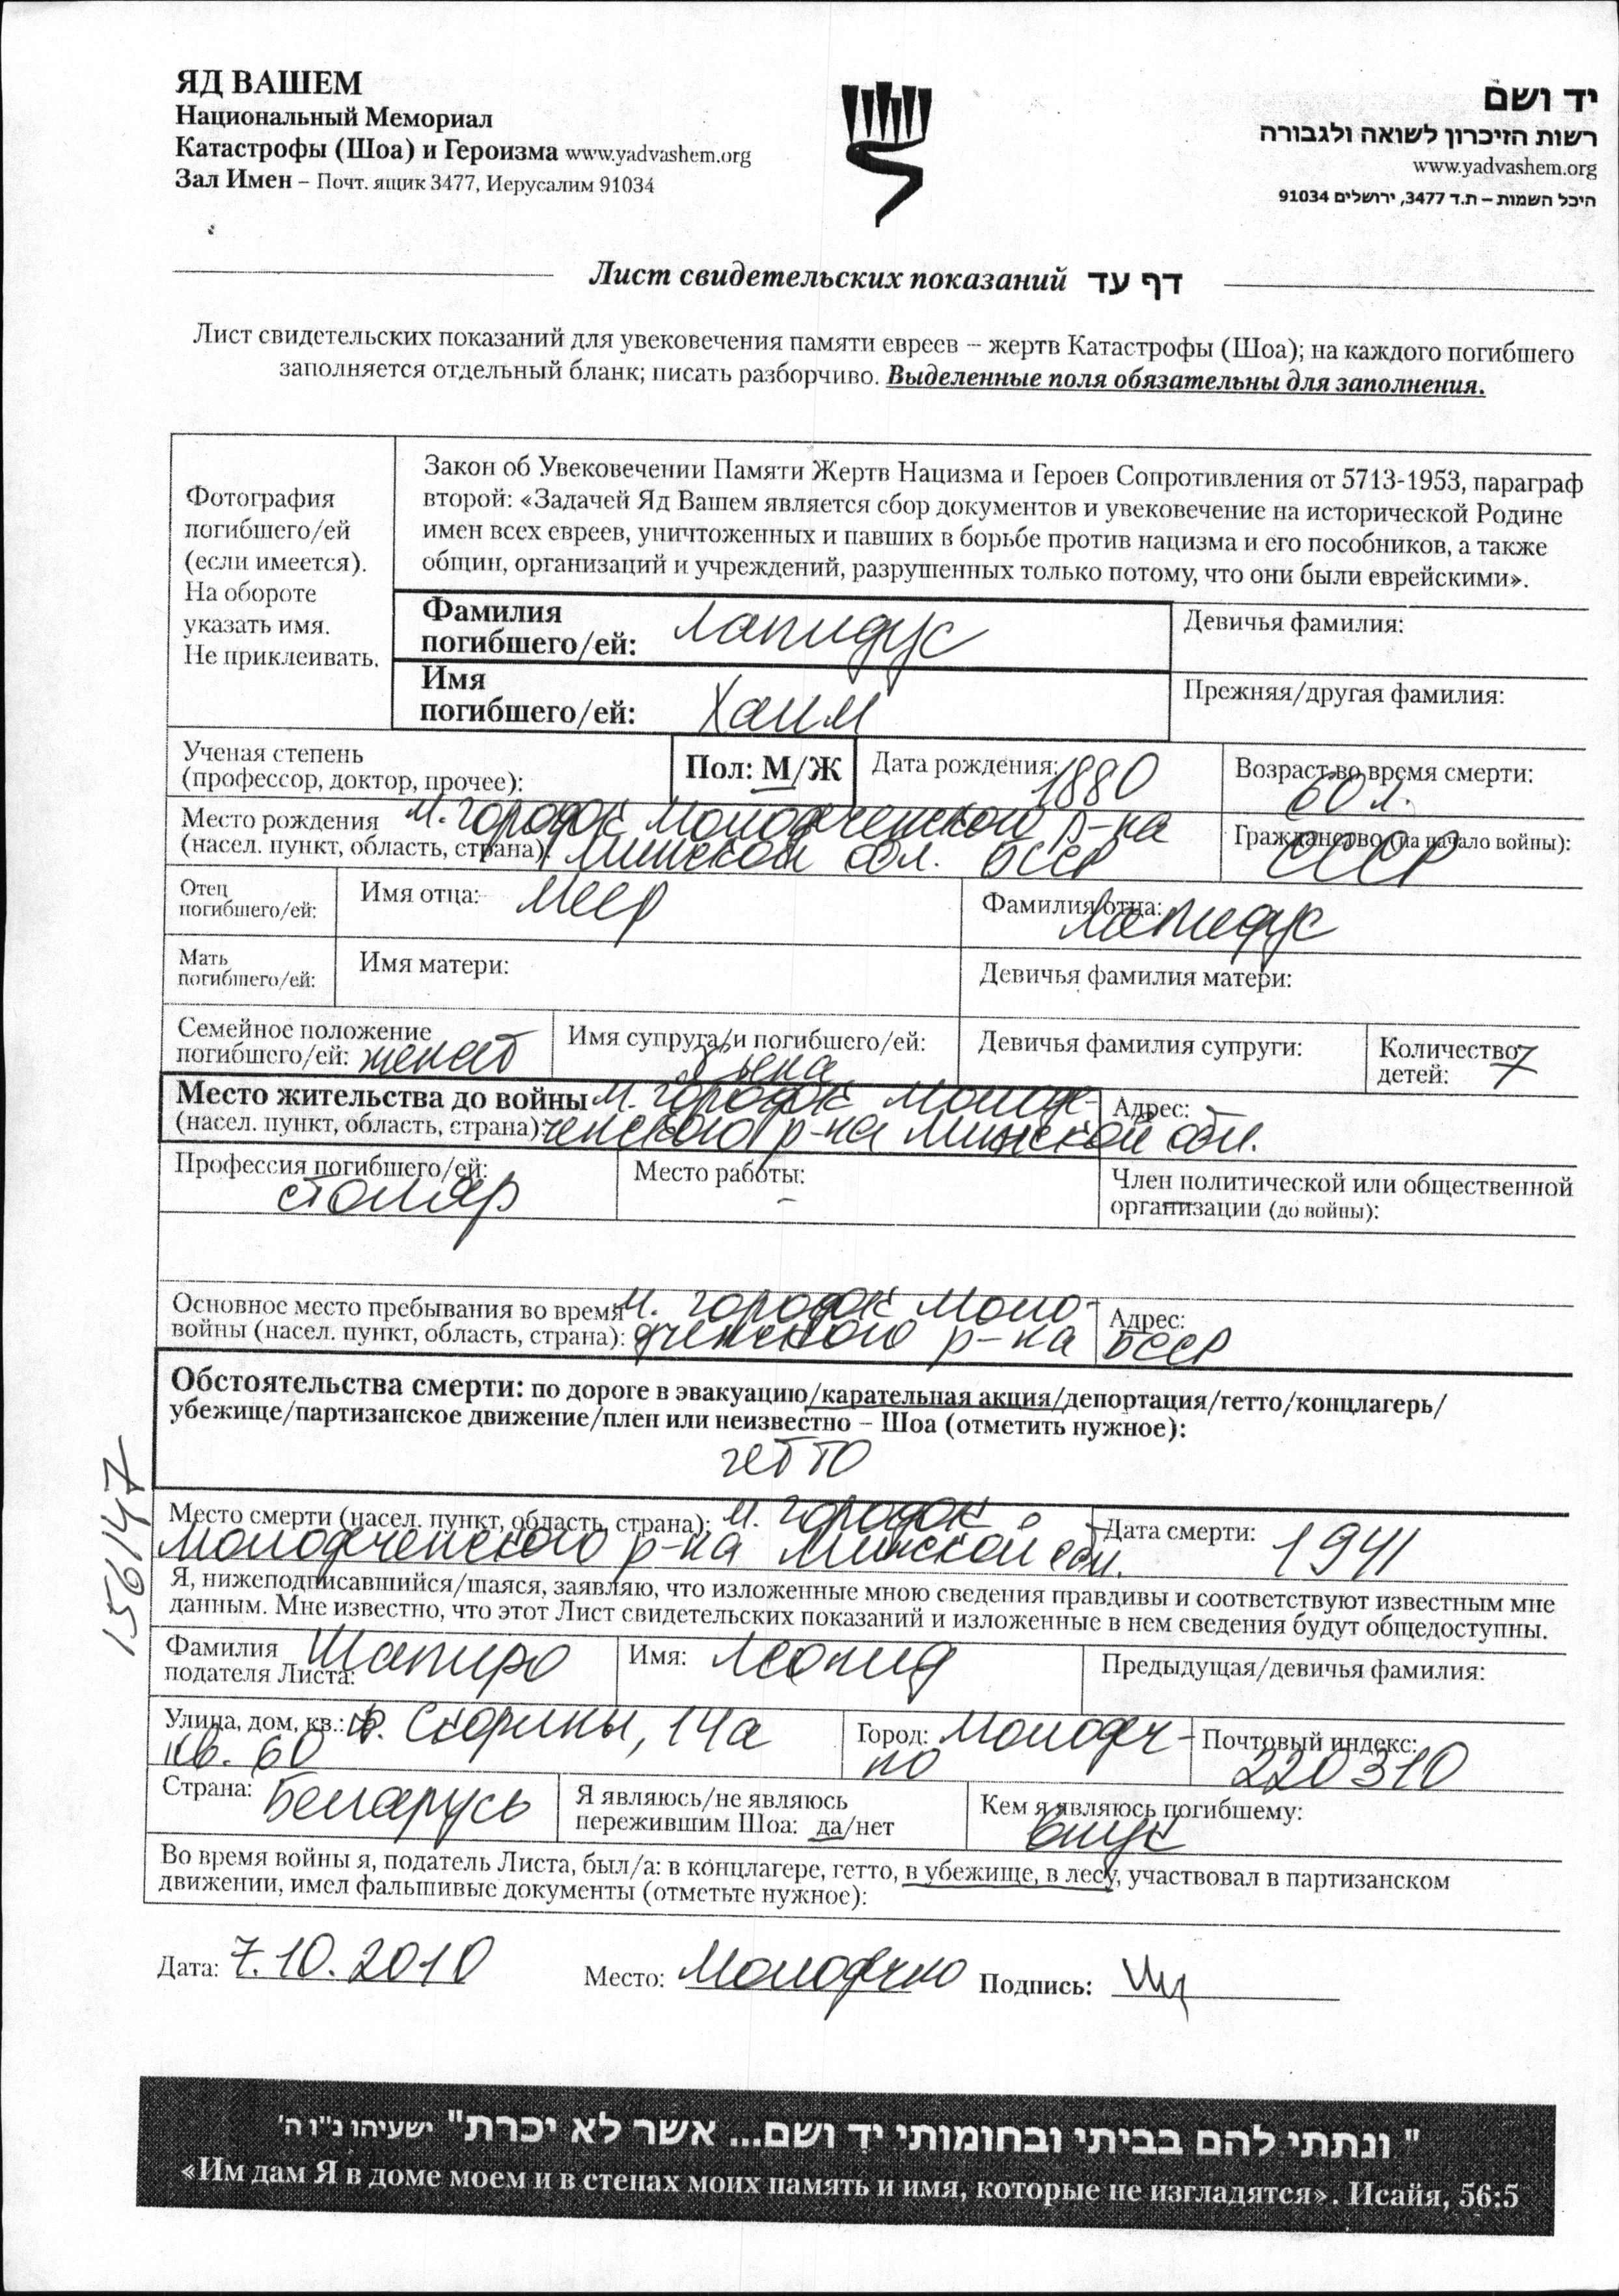 ЯД ВАШЕМ
Национальный Мемориал
Катастрофы (Шоа) и Героизма www.yadvashem.org
Зал Имен – Почт. ящик 3477, Иерусалим 91034
יד ושם
רשות הזיכרון לשואה ולגבורה
www.yadvashem.org
היכל השמות – ת.ד 3477, ירושלים 91034
Лист свидетельских показаний דף עד
Лист свидетельских показаний для увековечения памяти евреев – жертв Катастрофы (Шоа); на каждого погибшего
заполняется отдельный бланк; писать разборчиво. Выделенные поля обязательны для заполнения.
Фотография
погибшего/ей
(если имеется).
На обороте
указать имя.
Не приклеивать.
Закон об Увековечении Памяти Жертв Нацизма и Героев Сопротивления от 5713-1953, параграф
второй: «Задачей Яд Вашем является сбор документов и увековечение на исторической Родине
имен всех евреев, уничтоженных и павших в борьбе против нацизма и его пособников, а также
общин, организаций и учреждений, разрушенных только потому, что они были еврейскими».
Фамилия
погибшего/ей: Лапидус
Девичья фамилия:
Имя
погибшего/ей: Хаим
Прежняя/другая фамилия:
Ученая степень
(профессор, доктор, прочее):
Пол: М/Ж
Дата рождения: 1880
Возраст во время смерти:
60 л.
Место рождения м. городок Молодеченского р-на
(насел. пункт, область, страна): Минской обл. БССР
Гражданство (на начало войны):
СССР
Отец
погибшего/ей:
Имя отца: Меер
Фамилия отца:
Лапидус
Мать
погибшего/ей:
Имя матери:
Девичья фамилия матери:
Семейное положение
погибшего/ей: женат
Имя супруга/и погибшего/ей:
Девичья фамилия супруги:
Количество
детей: 7
Место жительства до войны м. городок Молоде-
(насел. пункт, область, страна): ченского р-на Минской обл.
Адрес:
Профессия погибшего/ей:
столяр
Место работы:
–
Член политической или общественной
организации (до войны):
Основное место пребывания во время м. городок Моло-
войны (насел. пункт, область, страна): дченского р-на
Адрес:
БССР
Обстоятельства смерти: по дороге в эвакуацию/карательная акция/депортация/гетто/концлагерь/
убежище/партизанское движение/плен или неизвестно – Шоа (отметить нужное):
гетто
Место смерти (насел. пункт, область, страна): м. городок
Молодеченского р-на Минской обл.
Дата смерти: 1941
156147
Я, нижеподписавшийся/шаяся, заявляю, что изложенные мною сведения правдивы и соответствуют известным мне
данным. Мне известно, что этот Лист свидетельских показаний и изложенные в нем сведения будут общедоступны.
Фамилия
подателя Листа: Шапиро
Имя: Леонид
Предыдущая/девичья фамилия:
Улица, дом, кв.: Ф. Скорины, 14а
кв. 60
Город: Молодеч-
но
Почтовый индекс:
220310
Страна: Беларусь
Я являюсь/не являюсь
пережившим Шоа: да/нет
Кем я являюсь погибшему:
внук
Во время войны я, податель Листа, был/а: в концлагере, гетто, в убежище, в лесу, участвовал в партизанском
движении, имел фальшивые документы (отметьте нужное):
Дата: 7.10.2010
Место: Молодечно
Подпись:
" ונתתי להם בביתי ובחומותי יד ושם... אשר לא יכרת" ישעיהו נ"ו ה'
«Им дам Я в доме моем и в стенах моих память и имя, которые не изгладятся». Исайя, 56:5